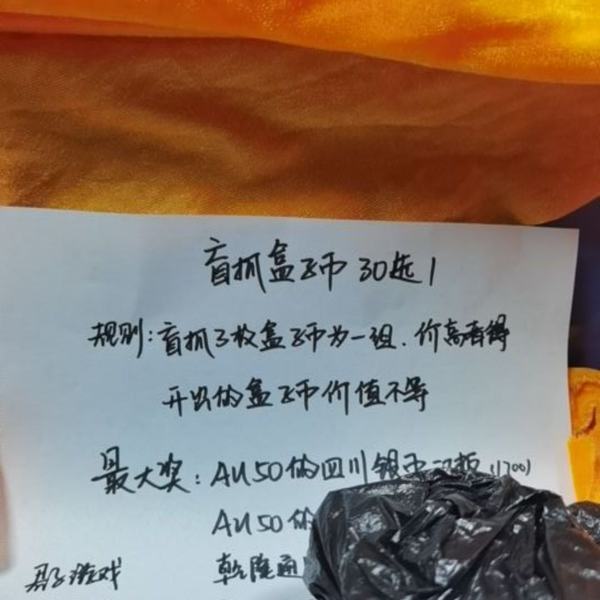 盲抓盒子币 30选1
规则:盲抓3枚盒子币为一组.价高者得
开出的盒子币价值不等
最大奖:AU50的四川银币汉板(1700)
AU50的
乾隆通
君子游戏